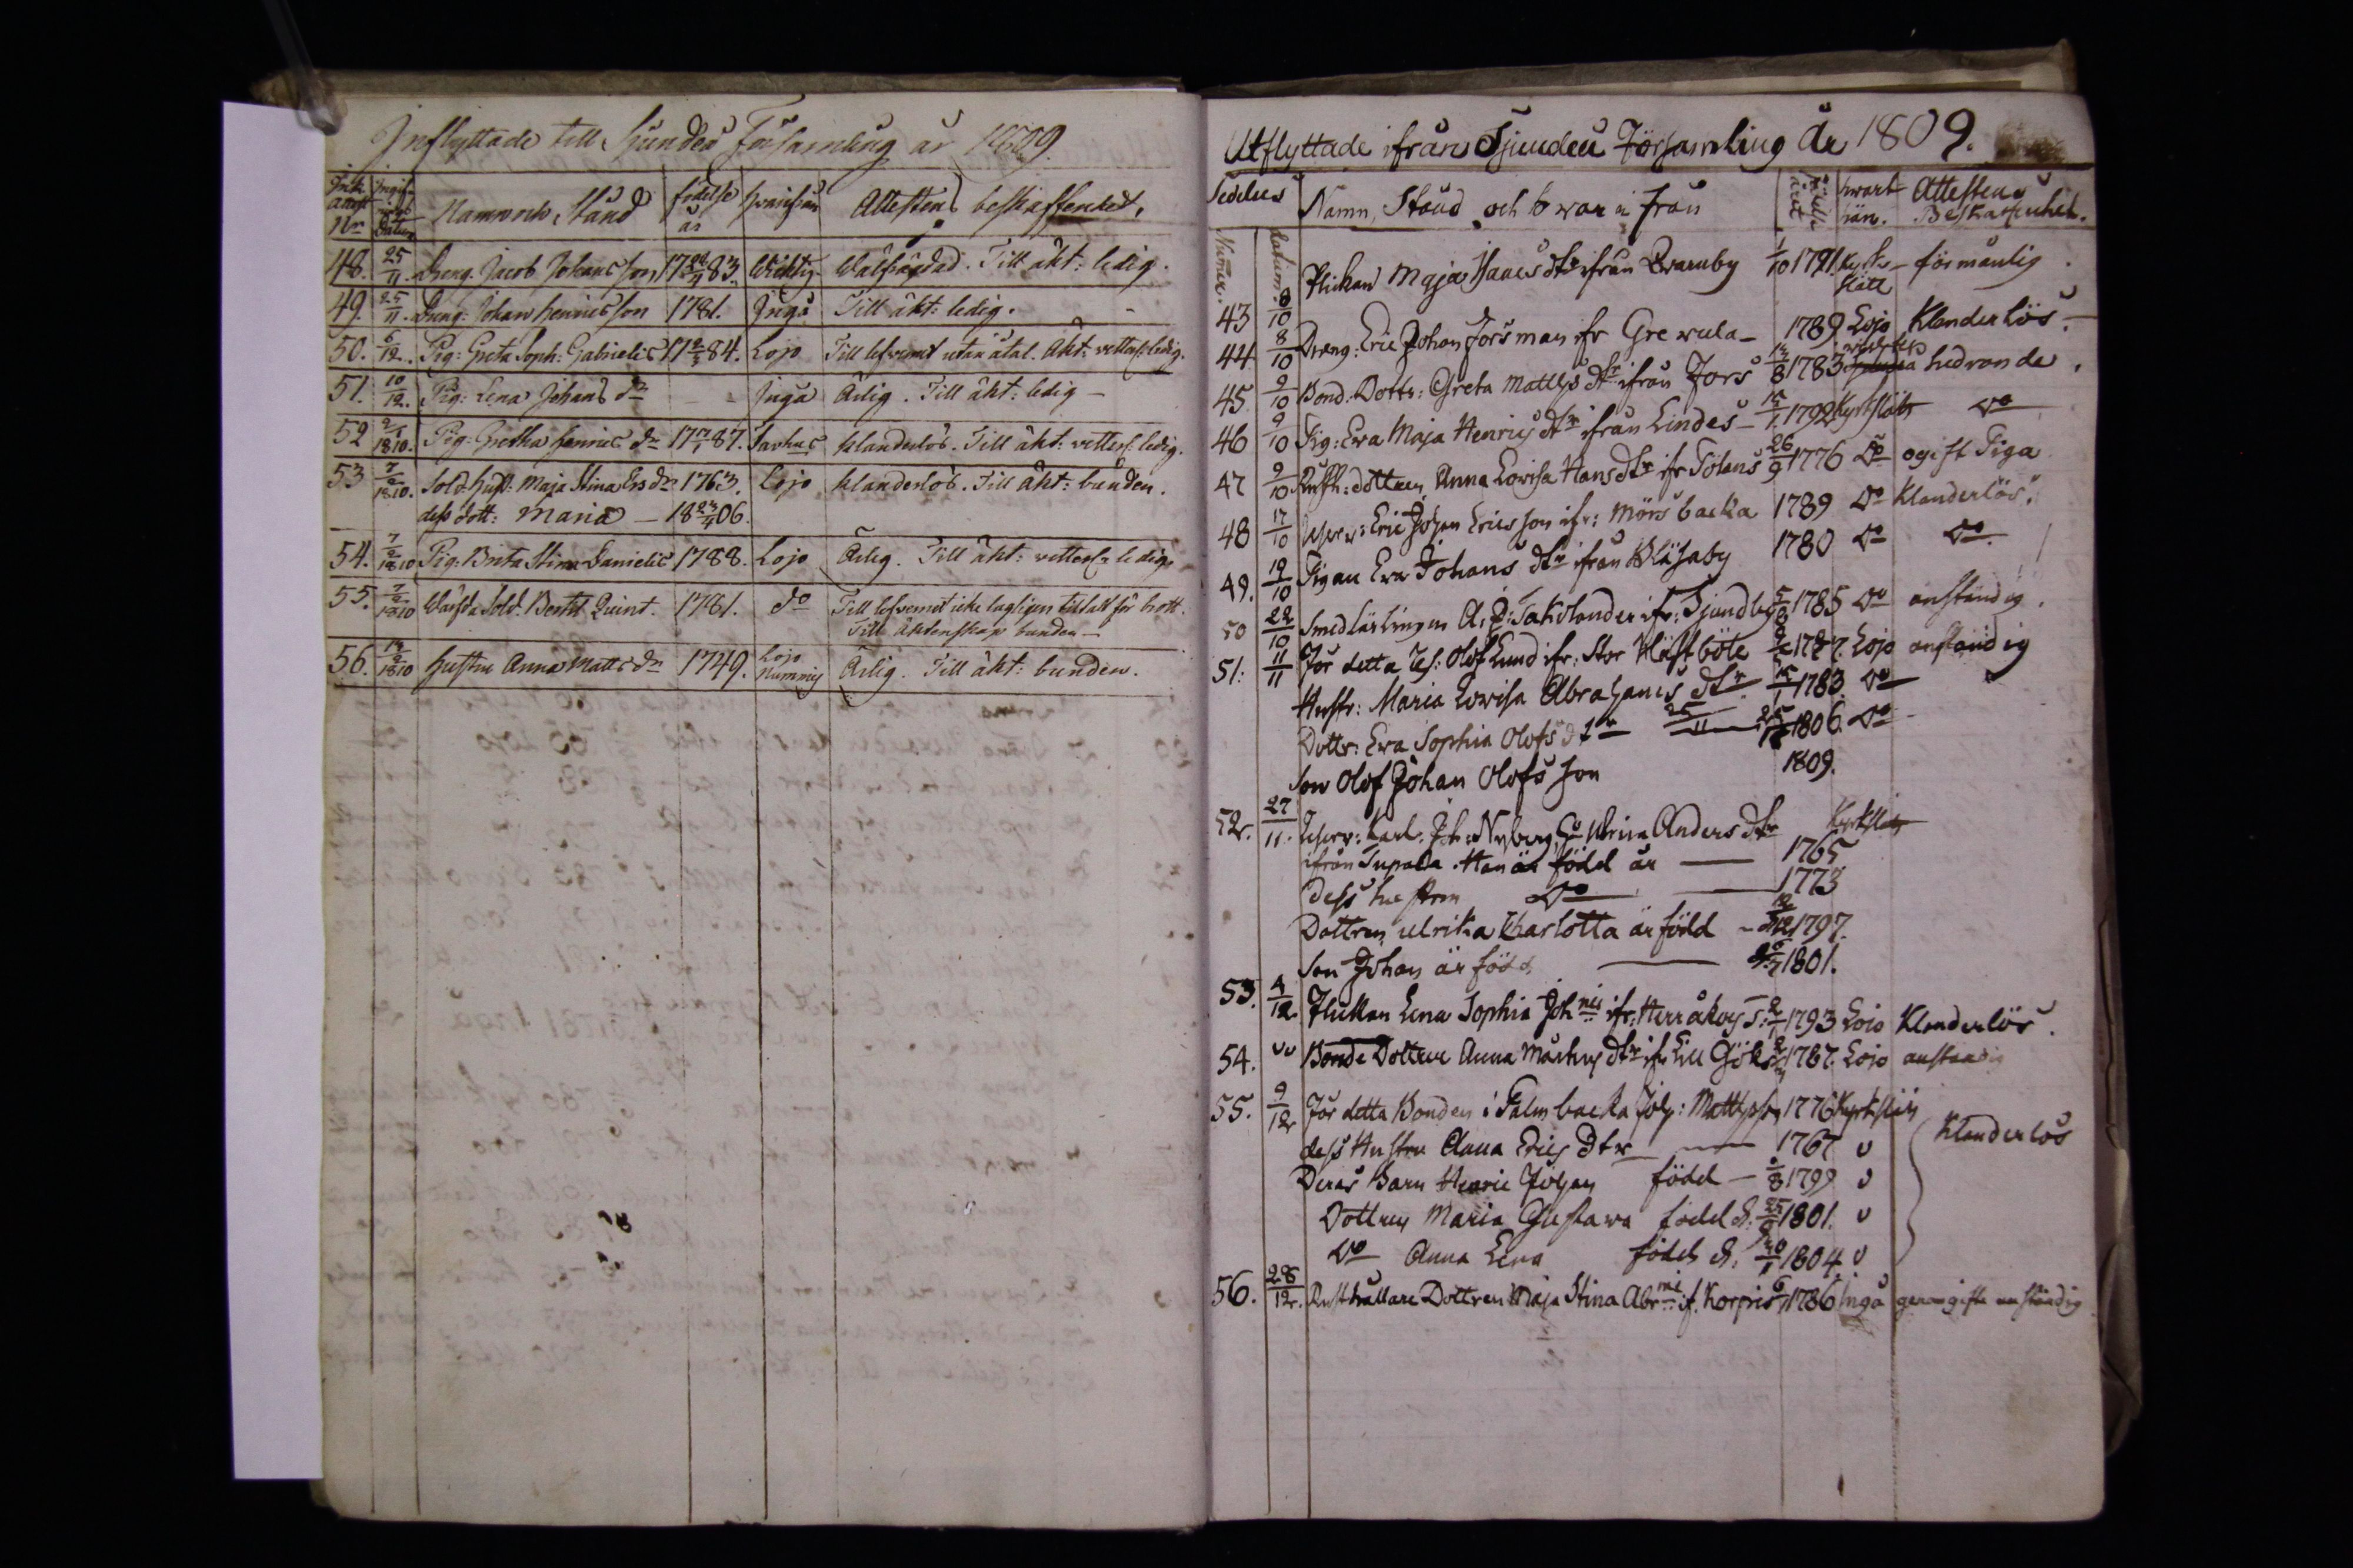 Inflyttade till Sjundeå Församling år 1809.
Namn och Stånd födelse år hvarifrån Attestens beskaffenhet.
Nr Datum
48. 25/11. Dreng. Jacob Johansson, 1783. Wichtis. Wälfrägdad. Till äkt: ledig.
49. 25/11. Dreng: Johan Henricsson 1781. Ingå Till äkt: ledig.
50. 6/12. Pig: Greta Soph: Gabrielis 1784. Lojo Till lefvernet utan åtal. Äkt: vetterl: ledig.
51. 10/12. Pig: Lena Johans dr - - Ingå Ärlig. Till äkt: ledig -
52 2/1 1810. Pig: Gretha Henrics dr 1787. klanderlös. Till äkt: vetterl: ledig.
53 7/2 1810. Sold. hust: Maja Stina Ers dr 1763. Lojo klanderlös. Till äkt: bunden.
dess dott: Maria — 18 23/4 06.
54. 7/2 1810 Pig: Brita Stina Danielis 1788. Lojo Ärlig. Till äkt: vetterl: ledig
55. 7/2 1810 Sold. Quint. 1781. do Till lefvernet icke lagligen tilltalt för brott.
Till äktenskap bunden —
56. 14/2 1810 Hustru Anna Matts dr 1749. Lojo Nummis Ärlig. Till äkt: bunden.
Utflyttade ifrån Sjundeå Församling år 1809.
Sedelns Namn, Stånd och hvar ifrån Attestens Beskaffenhet.
Numer. datum.
43 8/10 Flickan Maja Hans dtr ifrån Qvarnby 1/10 1791. Kyrkslätt förmånlig
44 8/10 Dreng: Eric Johan Forsman ifr Grewula — 1789 Lojo Klanderlös.
45 9/10 Bond. Dottr: Greta Matts dtr ifrån Fors 1783 hedrande.
46 9/10 Pig: Eva Maja Henrics dtr ifrån Lindes — 1792 Kyrkslätt Do
47 9/10 Rusth: dottren Anna Lovisa Hans dtr ifr Tötans 26/9 1776 Do ogift Piga
48 17/10 Reserv: Eric Johan Ericsson ifr: Mörsbacka 1789 Do Klanderlös.
49. 19/10 Pigan Eva Johans dtr ifrån Bläsaby 1780 Do Do
50 22/10 Smedlärlingen A: J: ifr: Sjundby 5/8 1785 Do anständig.
51. 11/11 För detta Res: Olof Lund ifr: Stor Kläftböle 1787. Lojo anständig
Hustr: Maria Lovisa Abrahams dtr 1783 Do
Dottr: Eva Sophia Olofs dtr 1806. Do
Son Olof Johan Olofsson 1809.
52. 27/11. Reserv: Carl. Joh: Nyberg Ulrica Anders dtr Kyrkslätt
ifrån Tupala. Han är född år — 1765
Dess hustru Do — 1773
Dottren Ulrika Charlotta är född 1797.
Son Johan är född — 1801.
53. 4/12. Flickan Lena Sophia Joh nis ifr: Herråkers 1793 Lojo Klanderlös.
54. Bonde Dottren Anna Mårtens dtr ifr Lill Göks 1787. Lojo anständig
55. 9/12 För detta Bonden i Palmbacka Joh: Mattsson 1776 Kyrkslätt
dess Hustru Anna Erics dtr — 1767 Klanderlös
Deras Barn Henric Johan född — 1799
Dottren Maria Gustava född d: 25 1801.
Do Anna Lena född d: 1804
56. 28/12. Rusthållare Dottren Maja Stina Abr mi if. Korpris 1786 Ingå anständig